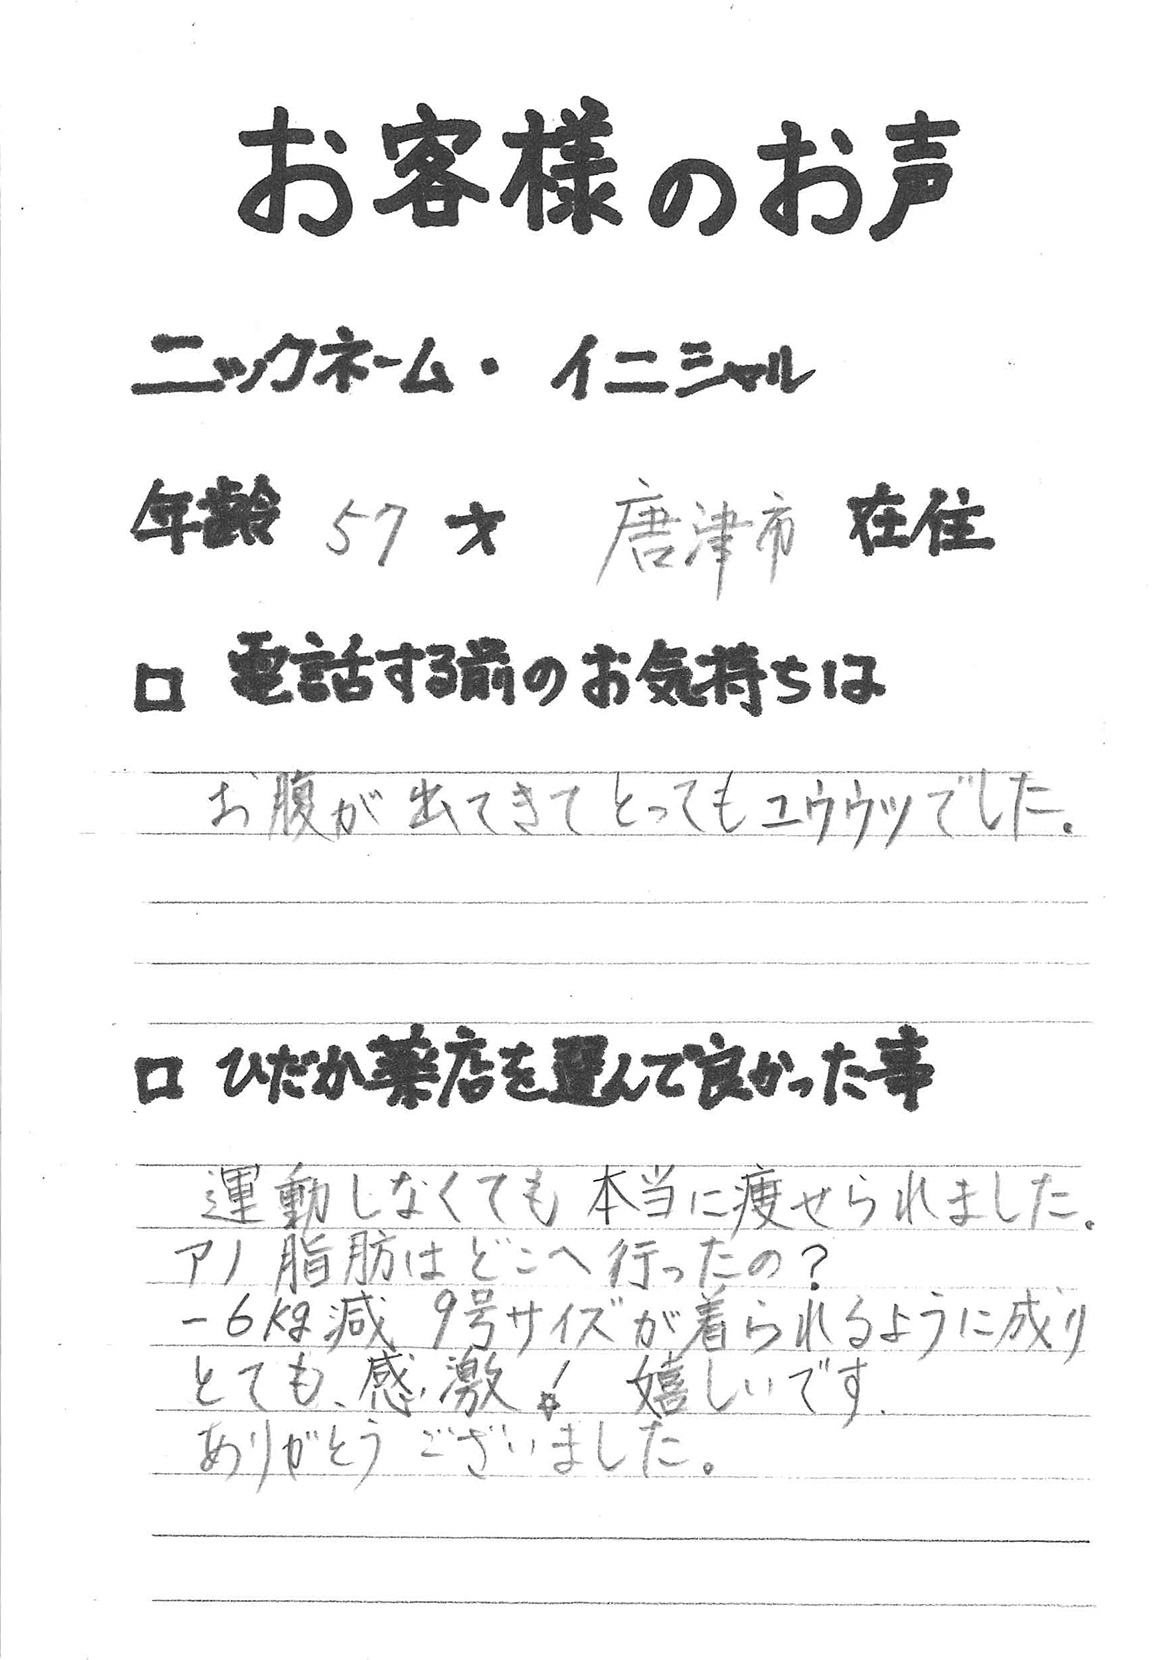 お客様のお声
ニックネーム・イニシャル
年齢 57 才 唐津市 在住
□ 電話する前のお気持ちは
お腹が出てきてとってもユウウツでした。
□ ひだか薬店を選んで良かった事
運動しなくても本当に痩せられました。
アノ脂肪はどこへ行ったの?
-6kg減 9号サイズが着られるように成り
とても、感激! 嬉しいです.
ありがとうございました。